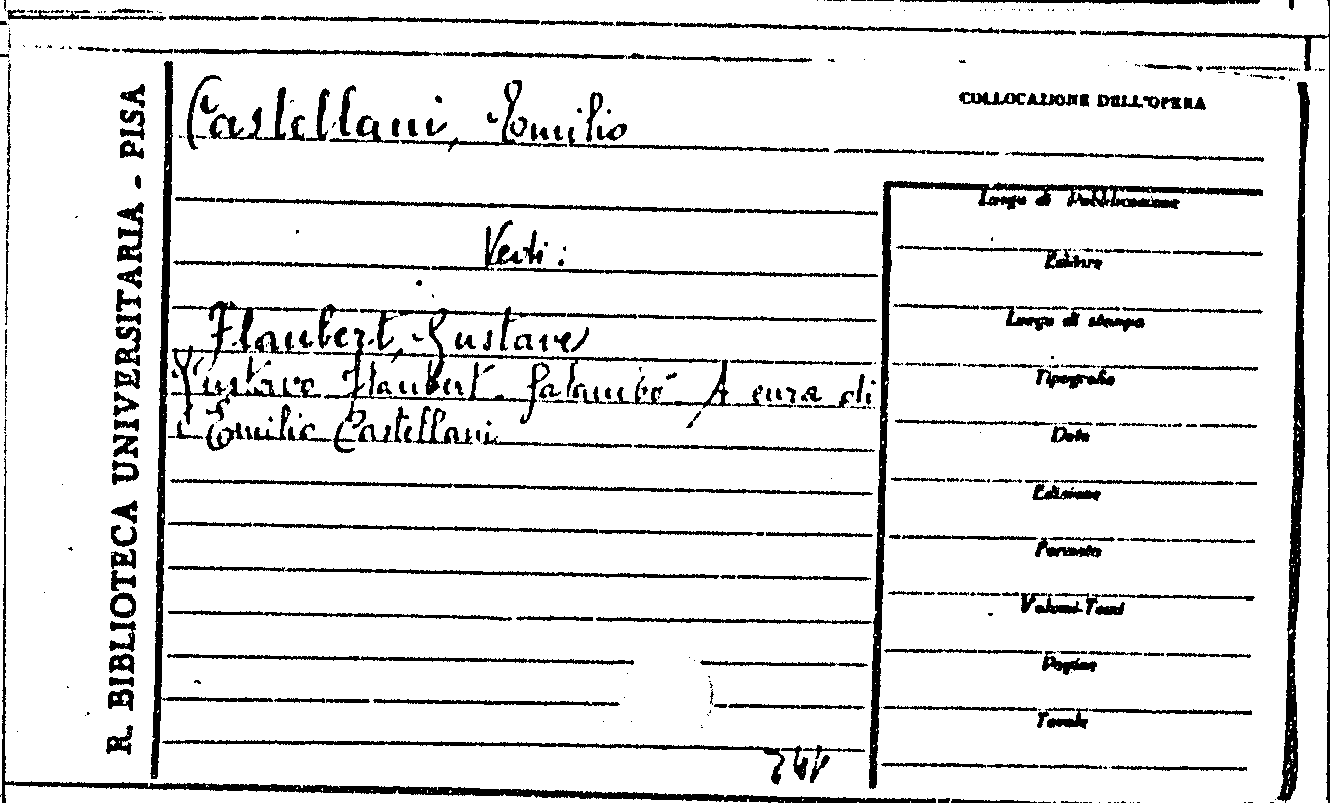 R. BIBLIOTECA UNIVERSITARIA - PISA
Castellani, Emilio
COLLOCAZIONE DELL'OPERA
Vedi:
Flaubert, Gustave
Gustavo Flaubert. Salambò. A cura di
Emilio Castellani.
Luogo di Pubblicazione
Editore
Luogo di stampa
Tipografia
Data
Edizione
Formato
Volumi-Tomi
Pagine
Tavole